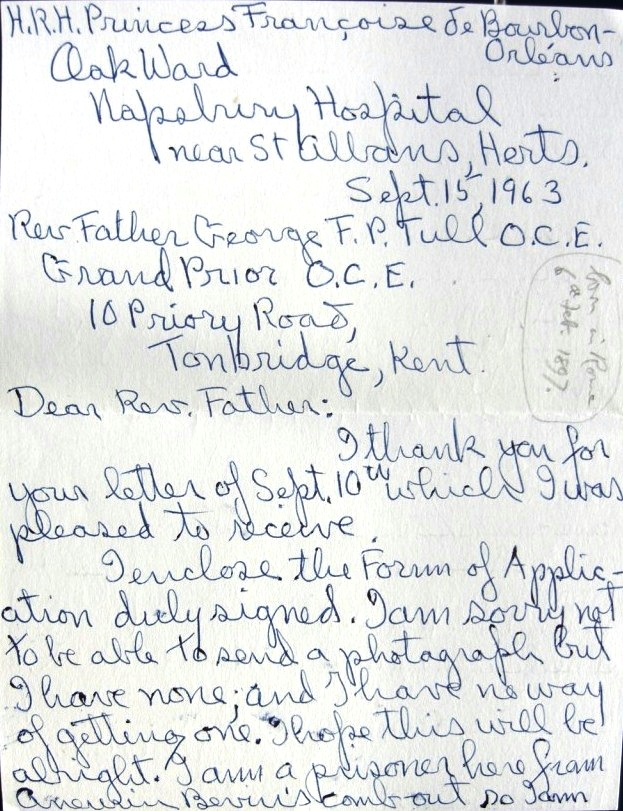 H.R.H. Princess Françoise de Bourbon-
Orléans
Oak Ward
Napsbury Hospital
near St Albans, Herts.
Sept. 15, 1963
Rev. Father George F. P. Tull O.C.E.
Grand Prior O.C.E.
10 Priory Road,
Tonbridge, Kent.
born in Rome
6th Feb. 1897.
Dear Rev. Father:
I thank you for
your letter of Sept. 10th which I was
pleased to receive.
I enclose the Form of Applic-
ation duly signed. I am sorry not
to be able to send a photograph but
I have none; and I have no way
of getting one. I hope this will be
alright. I am a prisoner here from
Aneurin Bevin's comb-out so I am